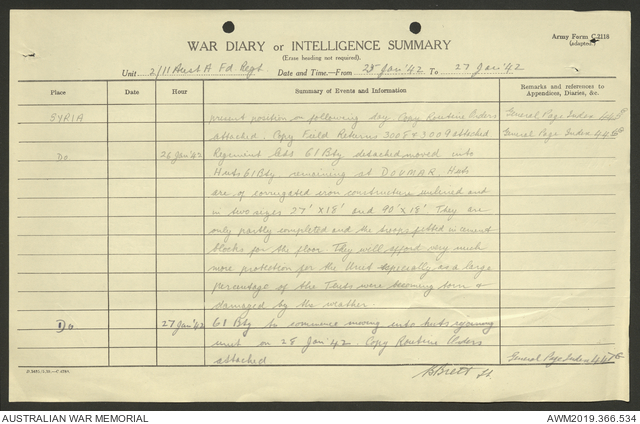 Army Form C.2118
(adapted.)
WAR DIARY or INTELLIGENCE SUMMARY
(Erase heading not required).
Unit 2/11 Aust A Fd Regt. Date and Time—From 25 Jan '42 To 27 Jan '42
Place Date Hour Summary of Events and Information Remarks and references to
Appendices, Diaries, &c.
SYRIA present position on following day. Copy Routine Orders General Page Index
attached. Copy Field Returns 3008 & 3009 attached General Page Index
Do 26 Jan '42 Regiment less 61 Bty detached moved into
Huts 61 Bty remaining at DOUMAR. Huts
are of corrugated iron constructure unlined and
in two sizes 27' x 18' and 90' x 18' They are
only partly completed and the troops fitted in cement
blocks for the floor. They will afford very much
more protection for the Unit especially as a large
percentage of the Tents were becoming torn &
damaged by the weather.
Do 27 Jan '42 61 Bty to commence moving into huts rejoining
unit on 28 Jan '42. Copy Routine Orders
attached. General Page Index
BBrett Lt.
AUSTRALIAN WAR MEMORIAL
AWM2019.366.534